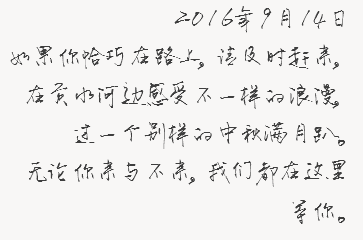 2016年9月14日
如果你恰巧在路上。请及时赶来。
在贡水河边感受不一样的浪漫。
过一个别样的中秋满月趴。
无论你来与不来。我们都在这里
等你。